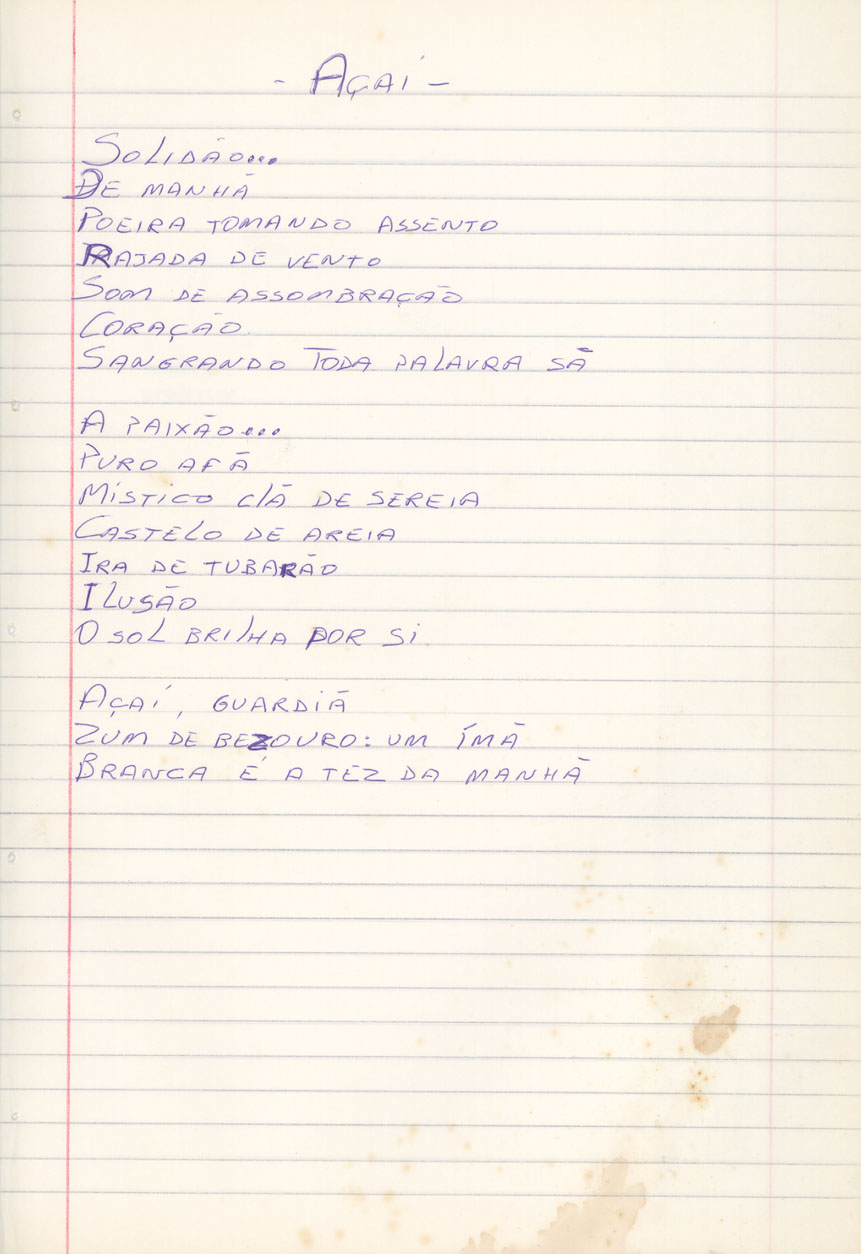 - AÇAÍ -
SOLIDÃO...
DE MANHÃ
POEIRA TOMANDO ASSENTO
RAJADA DE VENTO
SOM DE ASSOMBRAÇÃO
CORAÇÃO
SANGRANDO TODA PALAVRA SÃ
A PAIXÃO...
PURO AFÃ
MÍSTICO CLÃ DE SEREIA
CASTELO DE AREIA
IRA DE TUBARÃO
ILUSÃO
O SOL BRILHA POR SI
AÇAÍ, GUARDIÃ
ZUM DE BEZOURO: UM ÍMÃ
BRANCA É A TEZ DA MANHÃ